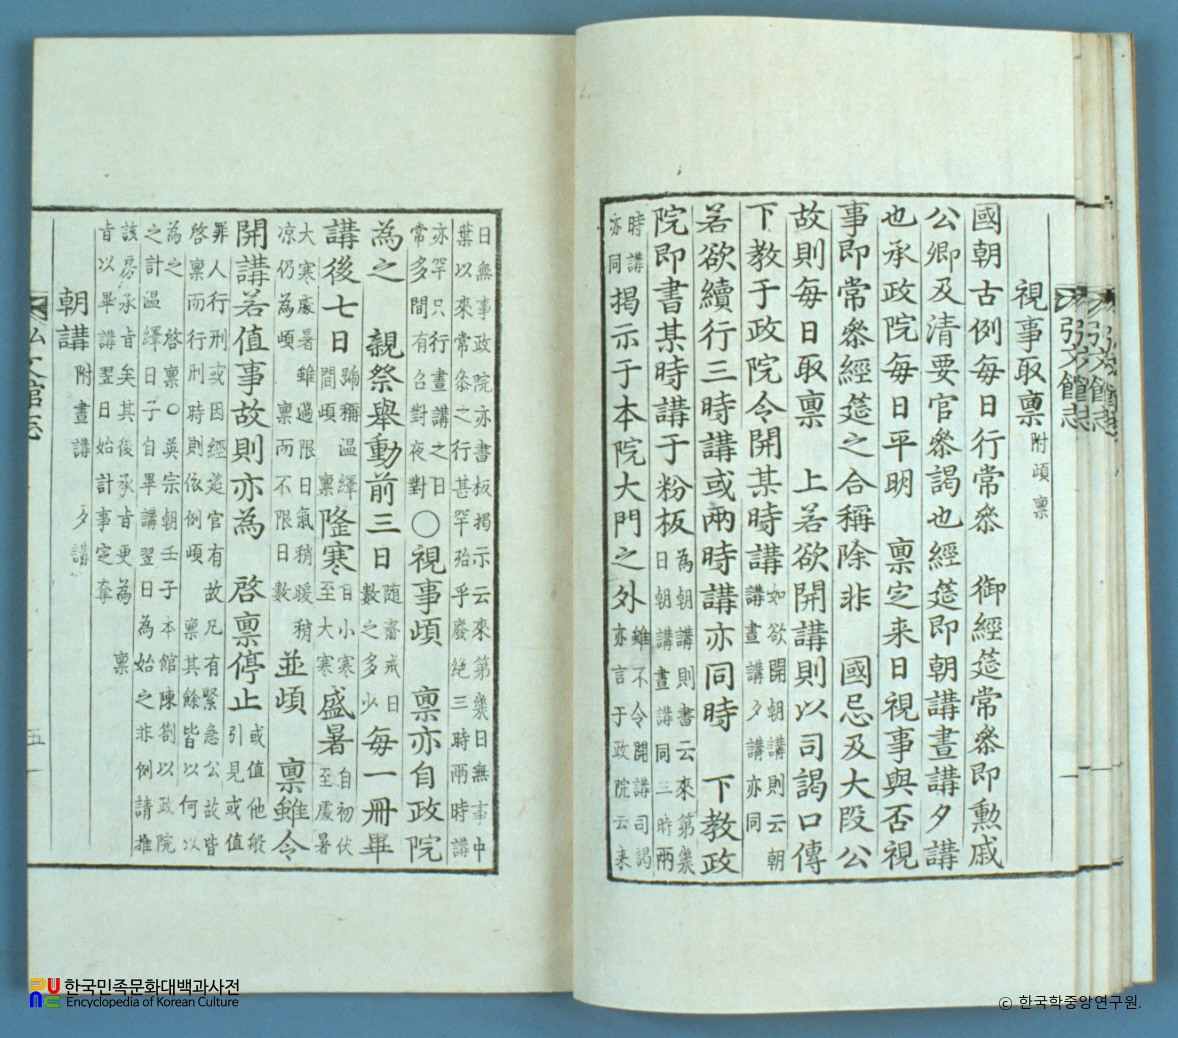 視事取稟 附頉稟
國朝古例每日行常叅 御經筵常叅即勳戚
公卿及清要官叅謁也經筵即朝講晝講夕講
也承政院每日平明 稟定来日視事與否視
事即常叅經筵之合稱除非 國忌及大段公
故則每日取稟 上若欲開講則以司謁口傳
下教于政院令開某時講 如欲開朝講則云朝
講晝講夕講亦同
若欲續行三時講或兩時講亦同時 下教政
院即書某時講于粉板 為朝講則書云來第幾
日朝講晝講同三時兩
時講
亦同
揭示于本院大門之外 雖不令開講司謁
亦言于政院云来
日無事政院亦書板揭示云來第幾日無事中
葉以來常叅之行甚罕殆乎廢絕三時兩時講
亦罕只行晝講之日
常多間有召對夜對
○視事頉 稟亦自政院
為之 親祭舉動前三日 随齋戒日
數之多少
每一冊畢
講後七日 踊稱温繹
間頉 稟
隆寒 自小寒
至大寒
盛暑 自初伏
至處暑
大寒處暑雖過限日氣稍暖稍
凉仍為頉 稟而不限日數
並頉 稟雖令
開講若值事故則亦為 啓稟停止 或值他般
引見或值
罪人行刑或因經筵官有故凡有緊急公故皆
啓稟而行刑時則依例頉 稟其餘皆以何以
為之 啓稟○英宗朝壬子本館陳劄以政院
之計温繹日子自畢講翌日為始之非例請推
該房承旨矣其後承旨更為 稟
旨以畢講翌日始計事定奪
朝講 附晝講 夕講
弘文館志
五
弘文館志
弘文館志
한국민족문화대백과사전
Encyclopedia of Korean Culture
© 한국학중앙연구원.